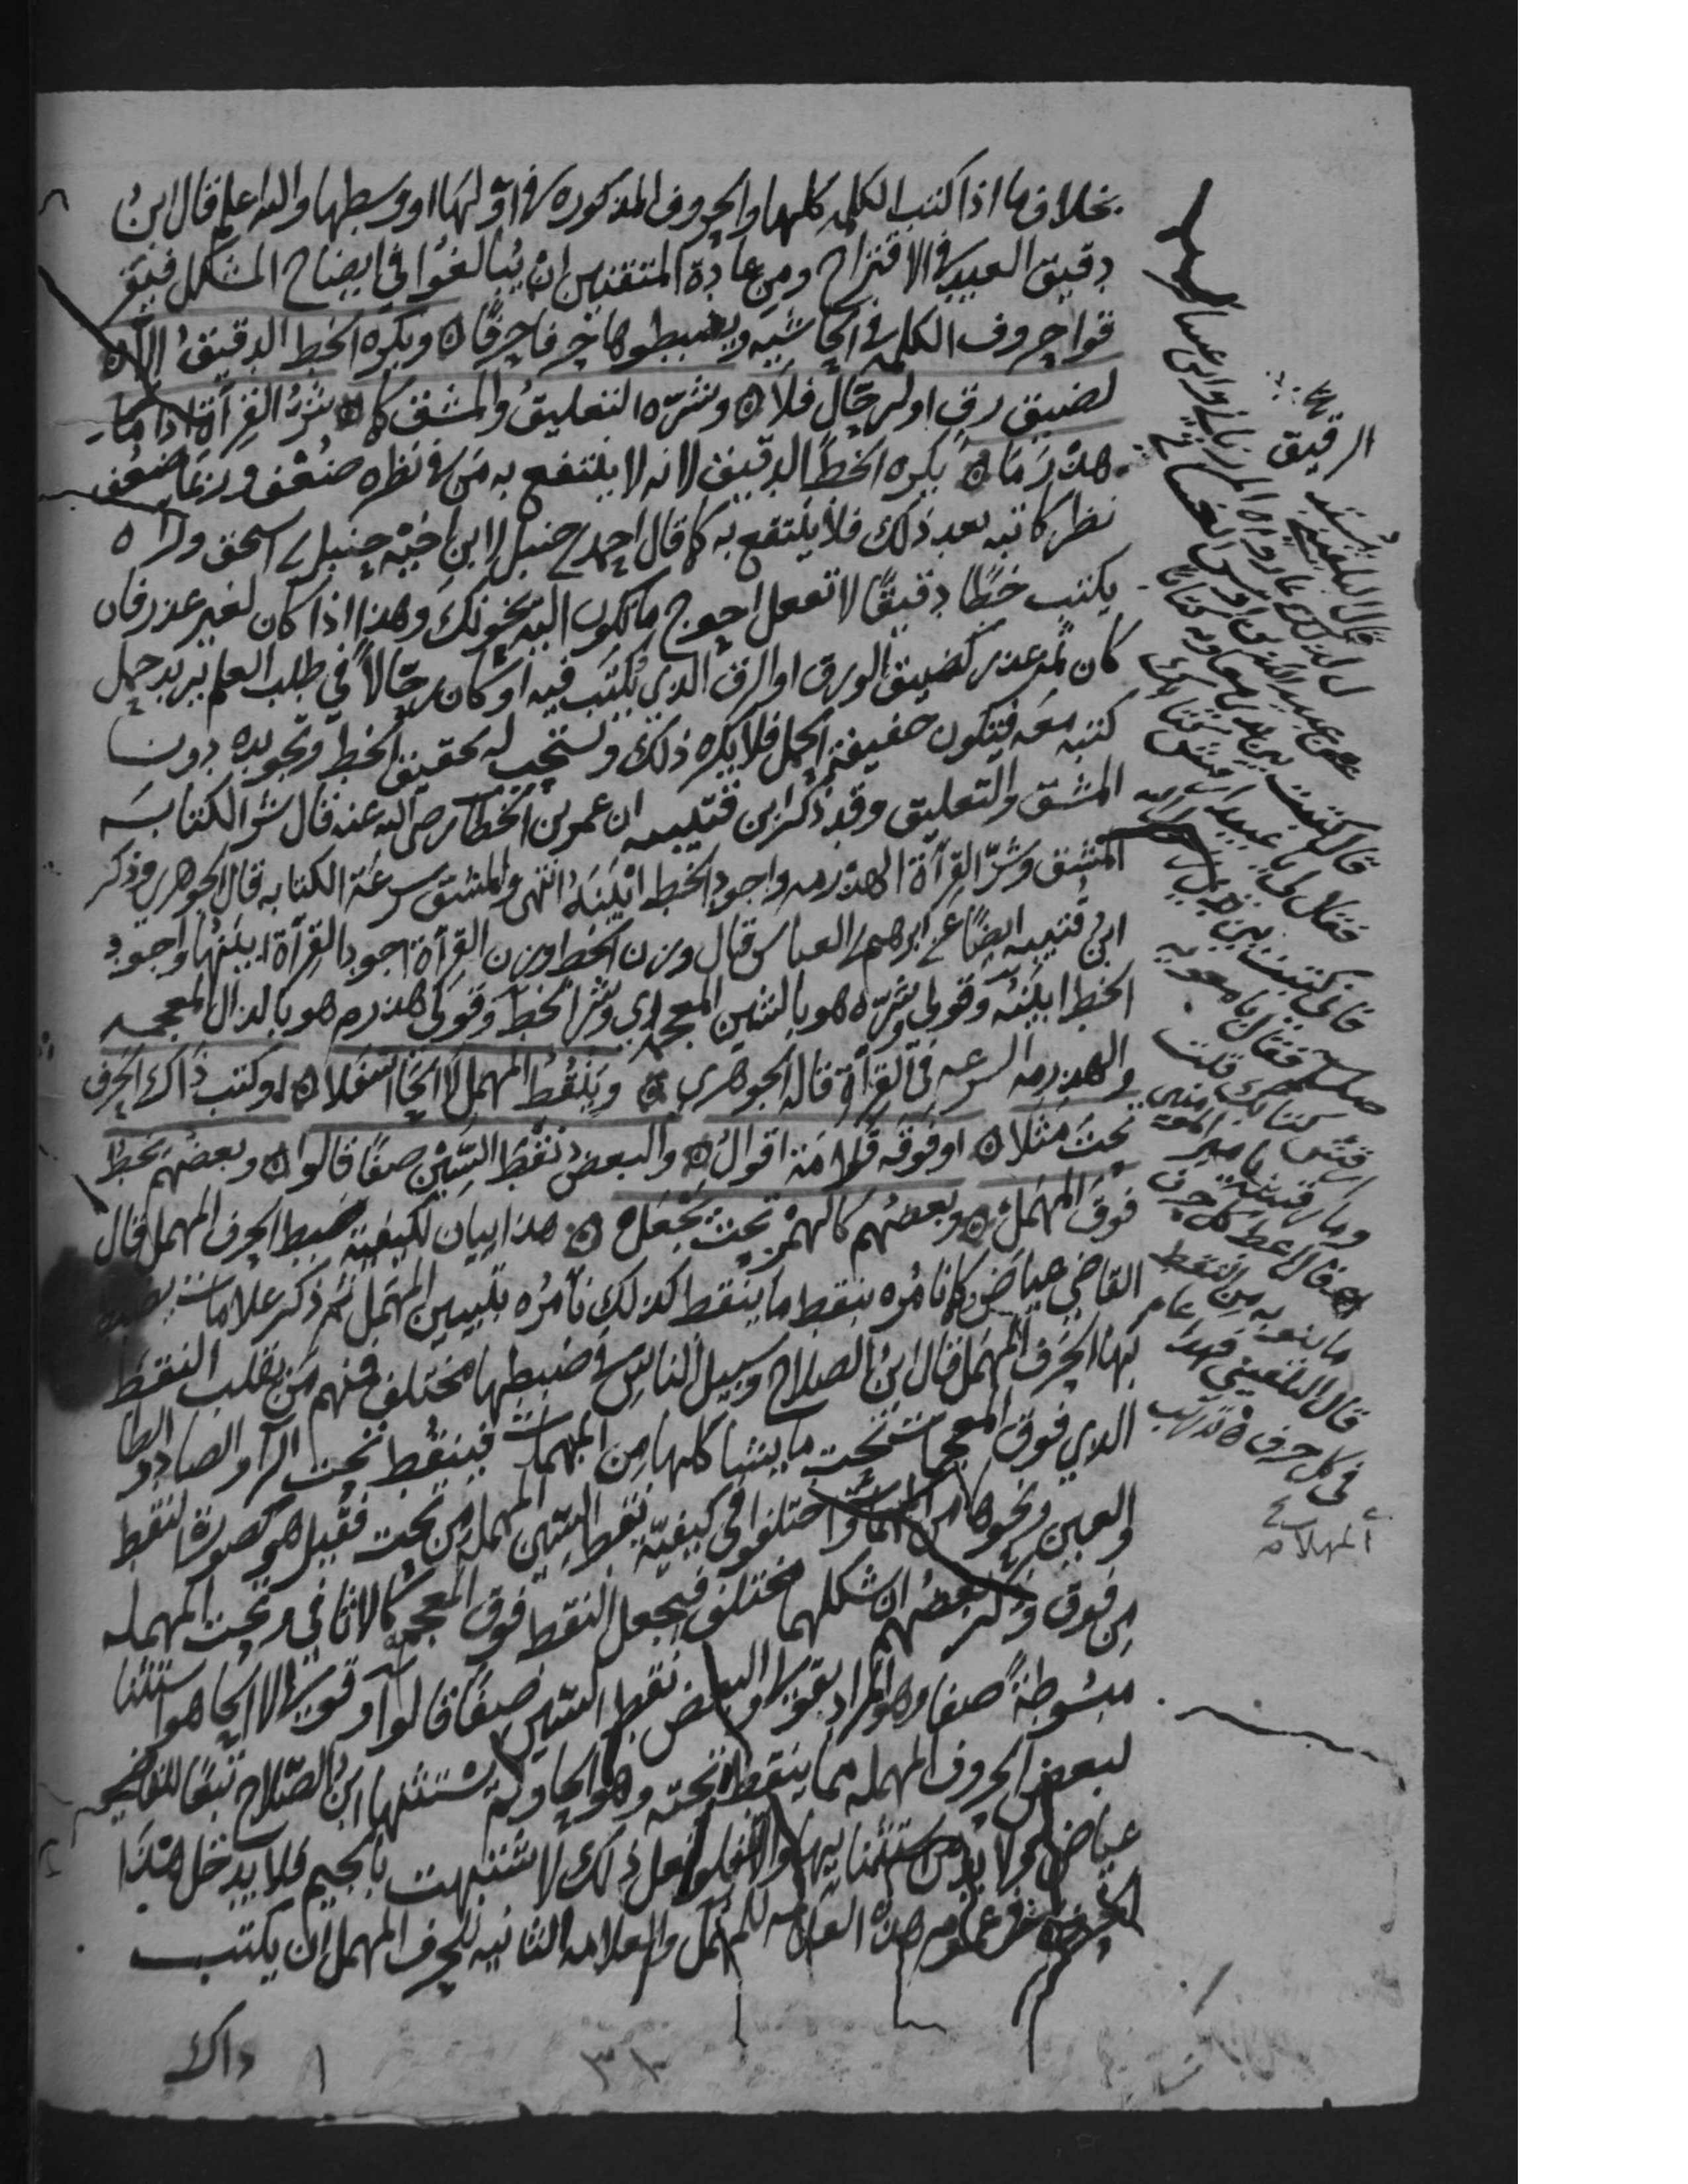 بخلاف ما اذا كتب الكلمه كلها والحروف المذكوره في اولها او وسطها والله اعلم قال ابن
دقيق العيد في الاقتراح ومن عادة المتقنين ان يبالغوا في ايضاح المشكل فيفر
قوا حروف الكلمه في الحاشية ويضبطوها حرفا حرفا ۞ ويكره الخط الدقيق الا
لضيق رق او لرحال فلا ۞ وشره التعليق والمشق كما ۞ شر القرآة اذا ما
هذرما ۞ يكره الخط الدقيق لانه لا ينتفع به من في نظره ضعف وربما ضعف
نظر كاتبه بعد ذلك فلا ينتفع به كما قال احمد بن حنبل لابن اخيه حنبل بن اسحق وراه
يكتب خطا دقيقا لا تفعل احوج ما تكون اليه يخونك وهذا اذا كان لغير عذر فان
كان ثم عذر كضيق الورق او الرق الذي يكتب فيه او كان رحالا في طلب العلم يريد حمل
كتبه معه فتكون خفيفة الحمل فلا يكره ذلك ويستحب له تحقيق الخط وتجويده دون
المشق والتعليق وقد ذكر ابن قتيبه ان عمر بن الخطاب رضي الله عنه قال شر الكتابة
المشق وشر القرآة الهذرمه واجود الخط ابينه انتهى والمشق سرعة الكتابه قال الجوهري وذكر
ابن قتيبه ايضا عن ابرهيم بن العباس قال وزن الخط وزن القرآة اجود القرآة ابينها واجود
الخط ابينه وقولي شره هو بالشين المعجمه اي وشر الخط وقولي هذرم هو بالذال المعجمه
والهذرمه السرعه في القرآة قاله الجوهري ۞ وينقط المهمل لا الحا اسفلا ۞ او كتب ذاك الحرف
تحت مثلا ۞ او فوقه قلامة اقوال ۞ والبعض نقط السين صفا قالوا ۞ وبعضهم يخط
فوق المهمل ۞ وبعضهم كالهمز تحت يجعل ۞ هذا بيان لكيفية ضبط الحرف المهمل قال
القاضي عياض كما نامره بنقط ما ينقط كذلك نامره بتبيين المهمل ثم ذكر علامات يضبط
بها الحرف المهمل قال ابن الصلاح وسبيل الناس في ضبطها مختلف فمنهم من يقلب النقط
الذي فوق المعجمات تحت ما يشاكلها من المهملات فينقط تحت الرآ والصاد والطا
والعين ونحوها من المهملات واختلفوا في كيفية نقط السين المهمله من تحت فقيل هو كصورة النقط
من فوق وذكر بعضهم ان شكلهما مختلف فيجعل النقط فوق المعجمه كالاثافي وتحت المهمله
مبسوطة صفا وهو المراد بقولي والبعض نقط السين صفا قالوا وقولي لا الحا هو استثنا
لبعض الحروف المهمله مما ينقط تحته وهو الحا ولم يستثنها ابن الصلاح تبعا للقاضي
عياض ولا بد من استثنايها والا فلو فعل ذلك لاشتبهت بالجيم فلا يدخل هذا
الحرف في عموم هذه العلامه للمهمل والعلامه الثانيه للحرف المهمل ان يكتب
الرقيق
قال البلقيني
قال كتبت بين يدي معاويه كتابا
فقال لي يا عبيد ارقش كتابك
فاني كتبت بين يدي رسول الله
صلى فقال يا معويه
ارقش كتابك قلت
وما رقشه يا امير المومنين
قال اعط كل حرف
ما ينوبه من النقط
قال البلقيني فهذا عام
في كل حرف
ذاك